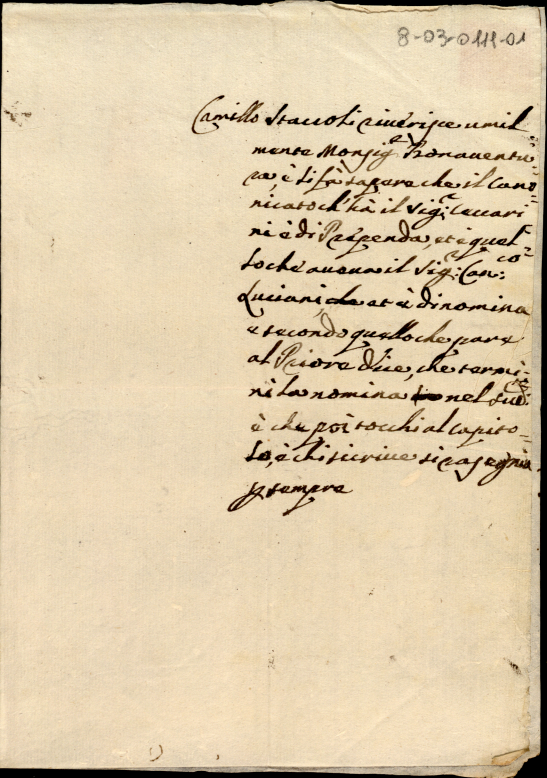 8-03-0111-01
Camillo Staccoli riverisce umil
mente Monsig.r Bonaventu
ra, è li fà sapere che il Cano=
nicato ch'hà il Sig.r Ceccari
ni è di Prependa, et è quel
lo che aveva il Sig.r Can.co
Luciani, che et è di nomina
e secondo quello che pare
al Priore dice, che termi=
ni la nomina nel
è che poi tocchi al capito=
lo, è chi scrive si rasegnia
p sempre